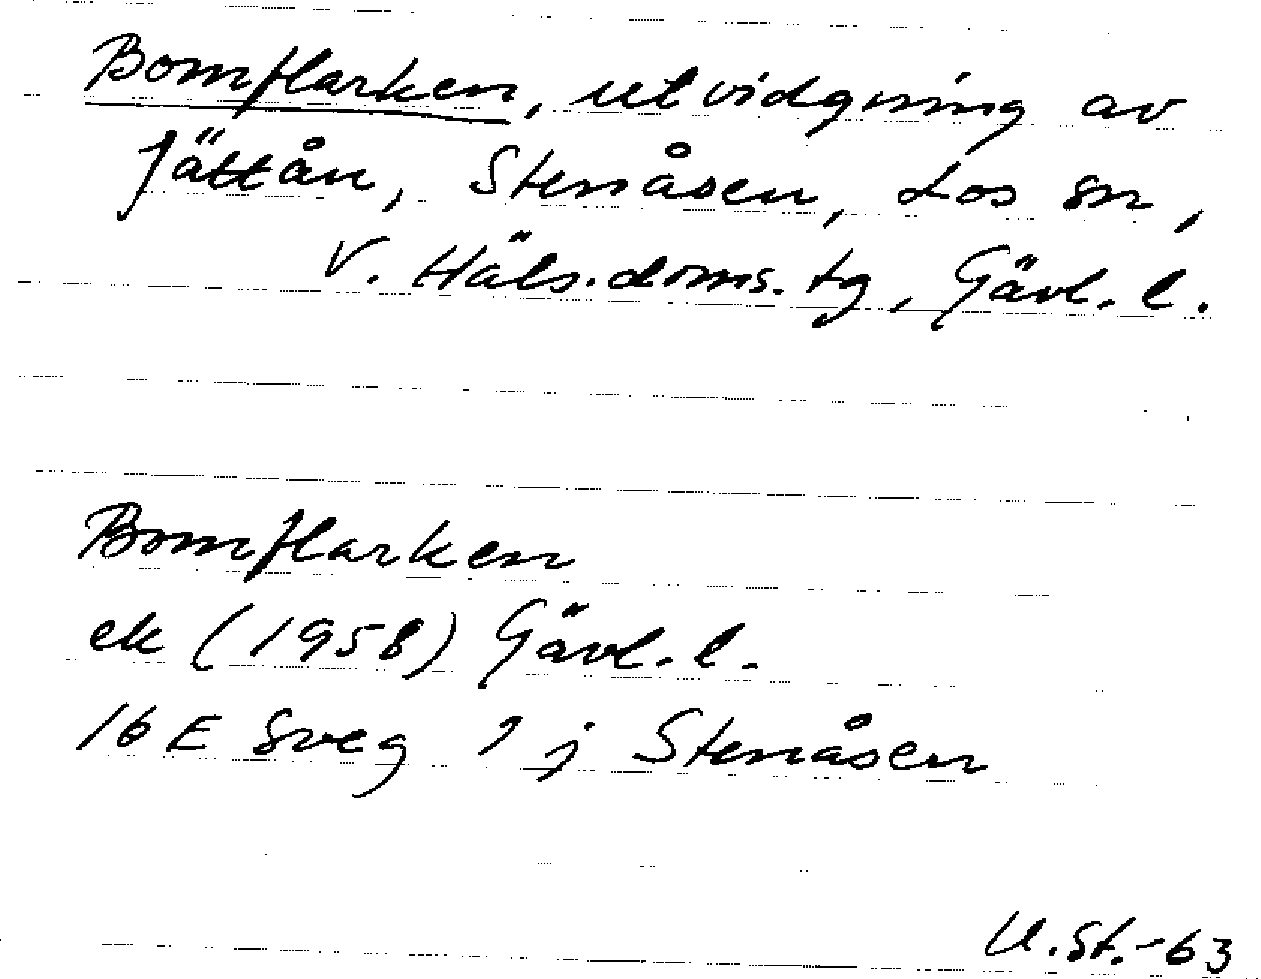 Bomflarken, utvidgning av
Jättån, Stenåsen, Los sn,
V. Häls. doms. tg, Gävl. l.
Bomflarken
ek (1958) Gävl. l.
16 E Sveg 9 j Stenåsen
U. St. -63